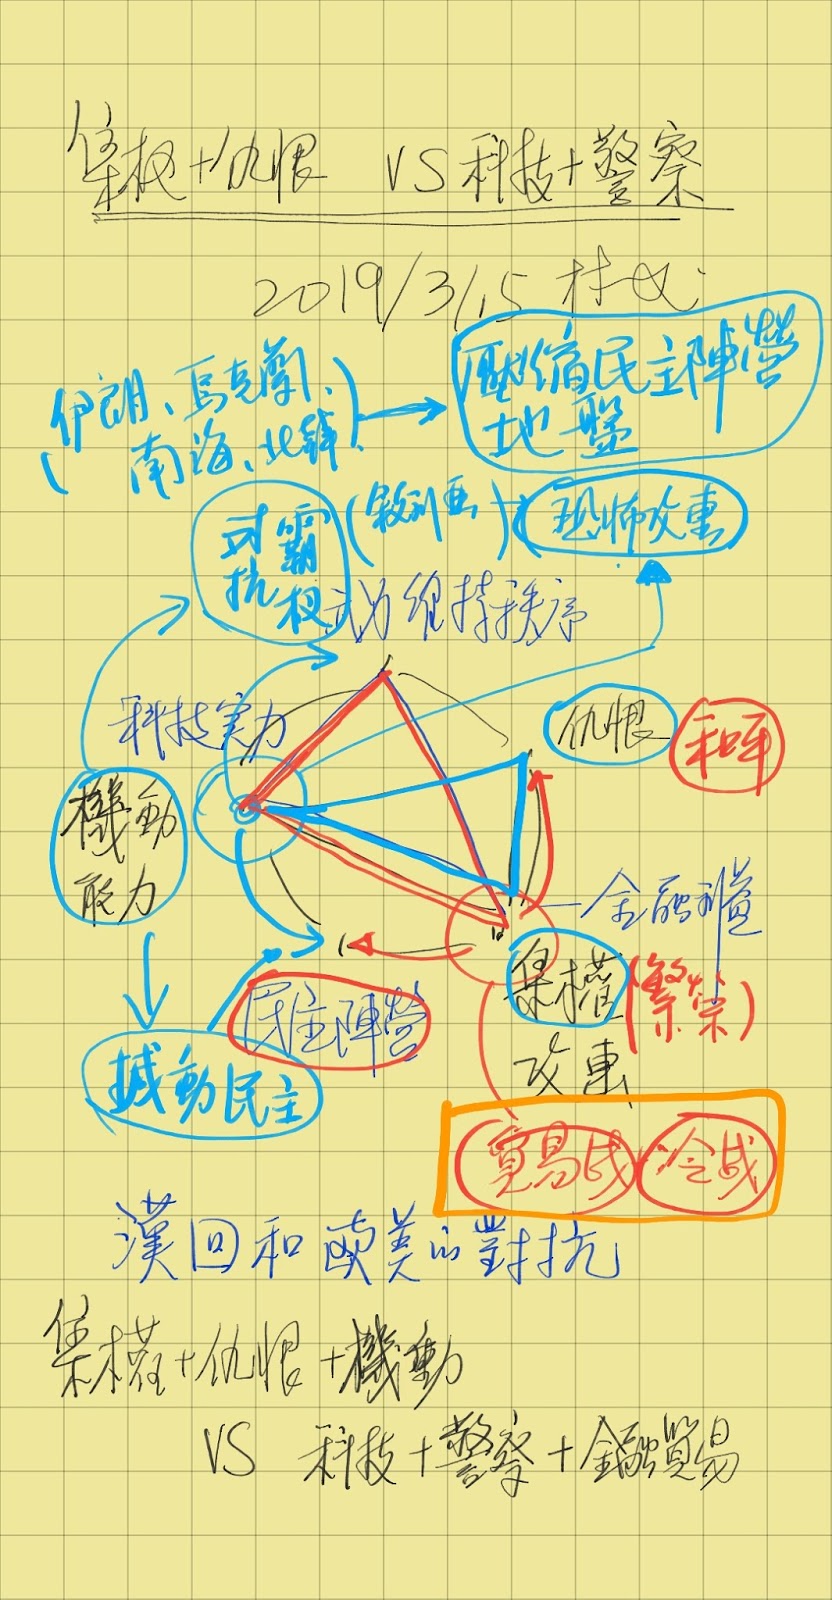 集权+仇恨 VS 科技+警察
2019/3/15
(伊朗、烏克蘭、
南海、北韓)
壓縮民主陣營
地盤
對霸
抗权
(敘利亞)
恐怖攻擊
武力維持秩序
科技实力
仇恨
和平
機動
能力
金融利益
集權
(繁榮)
攻擊
民主陣營
撼動民主
貿易战
冷战
漢回和歐美的對抗
集權+仇恨+機動
VS 科技+警察+金融貿易